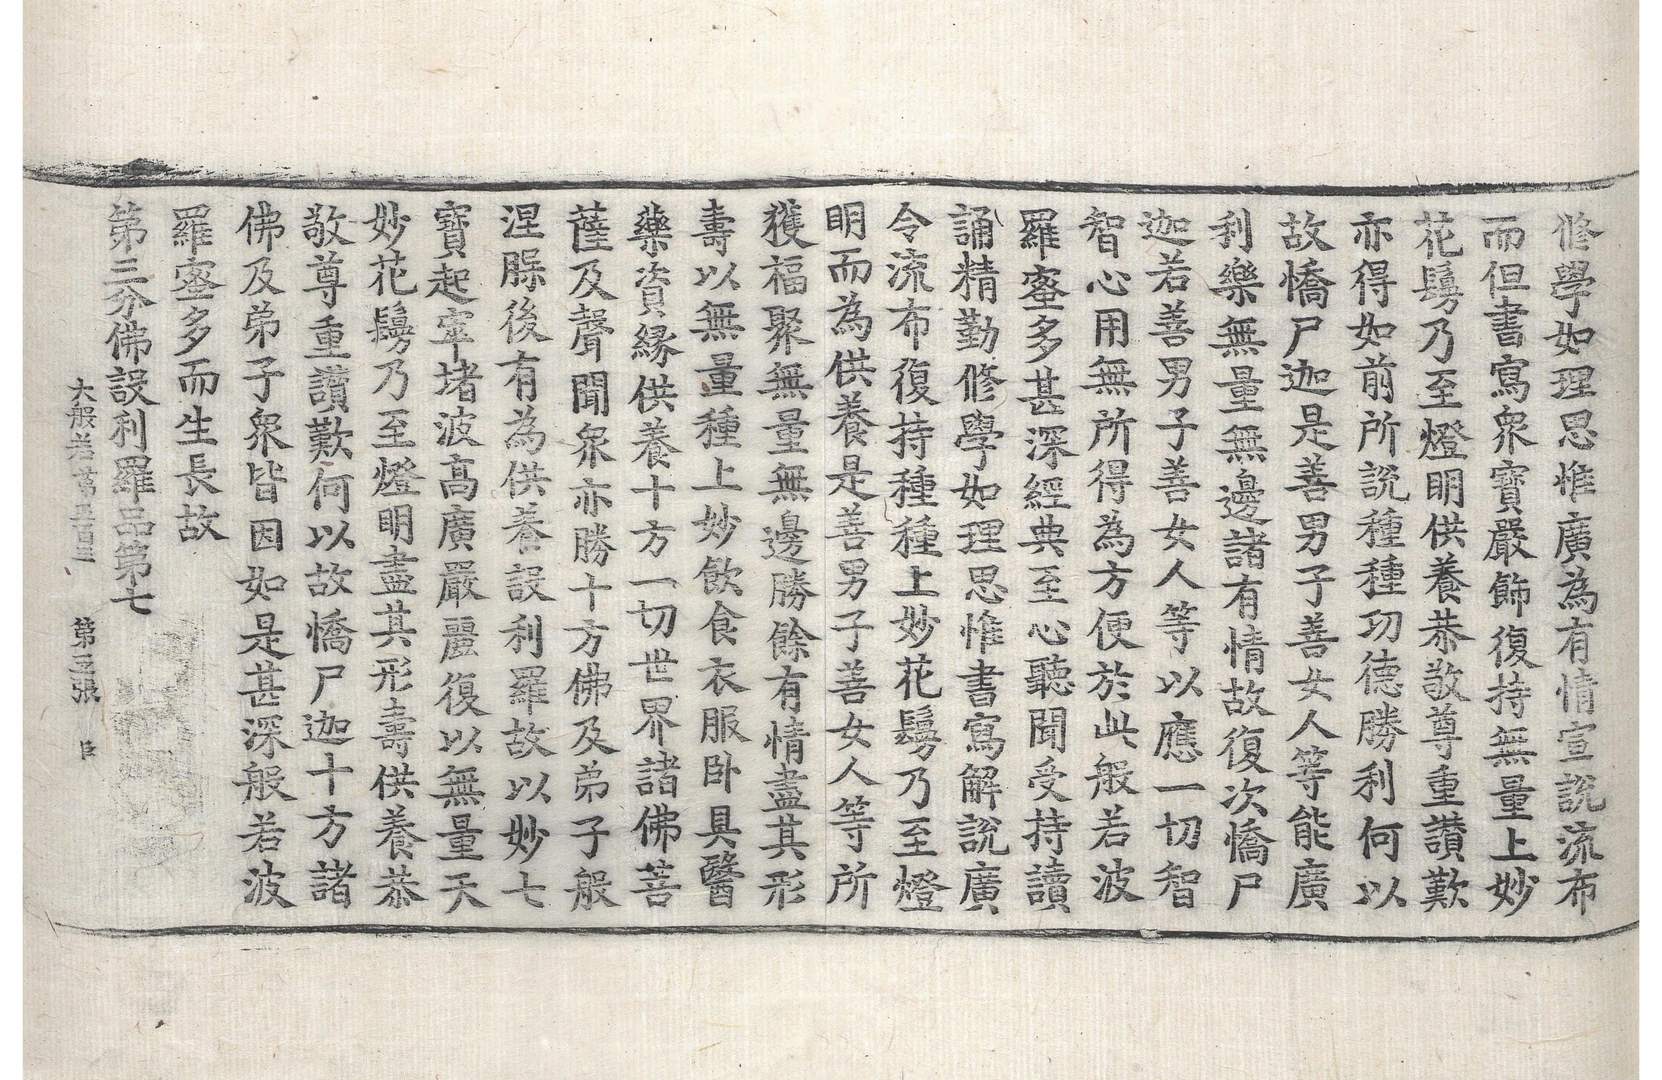 修學如理思惟廣為有情宣說流布
而但書寫衆寶嚴飾復持無量上妙
花鬘乃至燈明供養恭敬尊重讚歎
亦得如前所說種種功德勝利何以
故憍尸迦是善男子善女人等能廣
利樂無量無邊諸有情故復次憍尸
迦若善男子善女人等以應一切智
智心用無所得為方便於此般若波
羅蜜多甚深經典至心聽聞受持讀
誦精勤修學如理思惟書寫解說廣
令流布復持種種上妙花鬘乃至燈
明而為供養是善男子善女人等所
獲福聚無量無邊勝餘有情盡其形
壽以無量種上妙飲食衣服卧具醫
藥資緣供養十方一切世界諸佛菩
薩及聲聞衆亦勝十方佛及弟子般
涅槃後有為供養設利羅故以妙七
寶起窣堵波高廣嚴麗復以無量天
妙花鬘乃至燈明盡其形壽供養恭
敬尊重讚歎何以故憍尸迦十方諸
佛及弟子衆皆因如是甚深般若波
羅蜜多而生長故
第三分佛設利羅品第七
大般若第五百三 第五張 臣